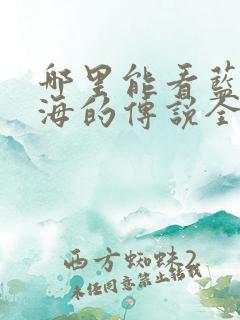 哪里能看蓝
海的傳説全
西方蜘蛛2
未经同意禁止转载